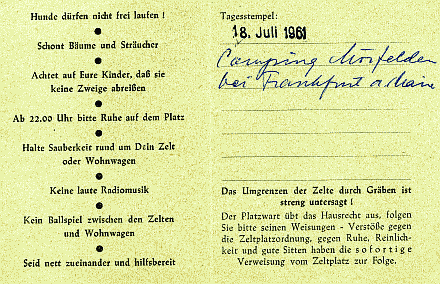 Hunde dürfen nicht frei laufen !
Schont Bäume und Sträucher
Achtet auf Eure Kinder, daß sie
keine Zweige abreißen
Ab 22.00 Uhr bitte Ruhe auf dem Platz
Halte Sauberkeit rund um Dein Zelt
oder Wohnwagen
Keine laute Radiomusik
Kein Ballspiel zwischen den Zelten
und Wohnwagen
Seid nett zueinander und hilfsbereit
Tagesstempel:
18. Juli 1961
Camping Mörfelden
bei Frankfurt a Main
Das Umgrenzen der Zelte durch Gräben ist
streng untersagt !
Der Platzwart übt das Hausrecht aus, folgen
Sie bitte seinen Weisungen - Verstöße gegen
die Zeltplatzordnung, gegen Ruhe, Reinlich-
keit und gute Sitten haben die sofortige
Verweisung vom Zeltplatz zur Folge.